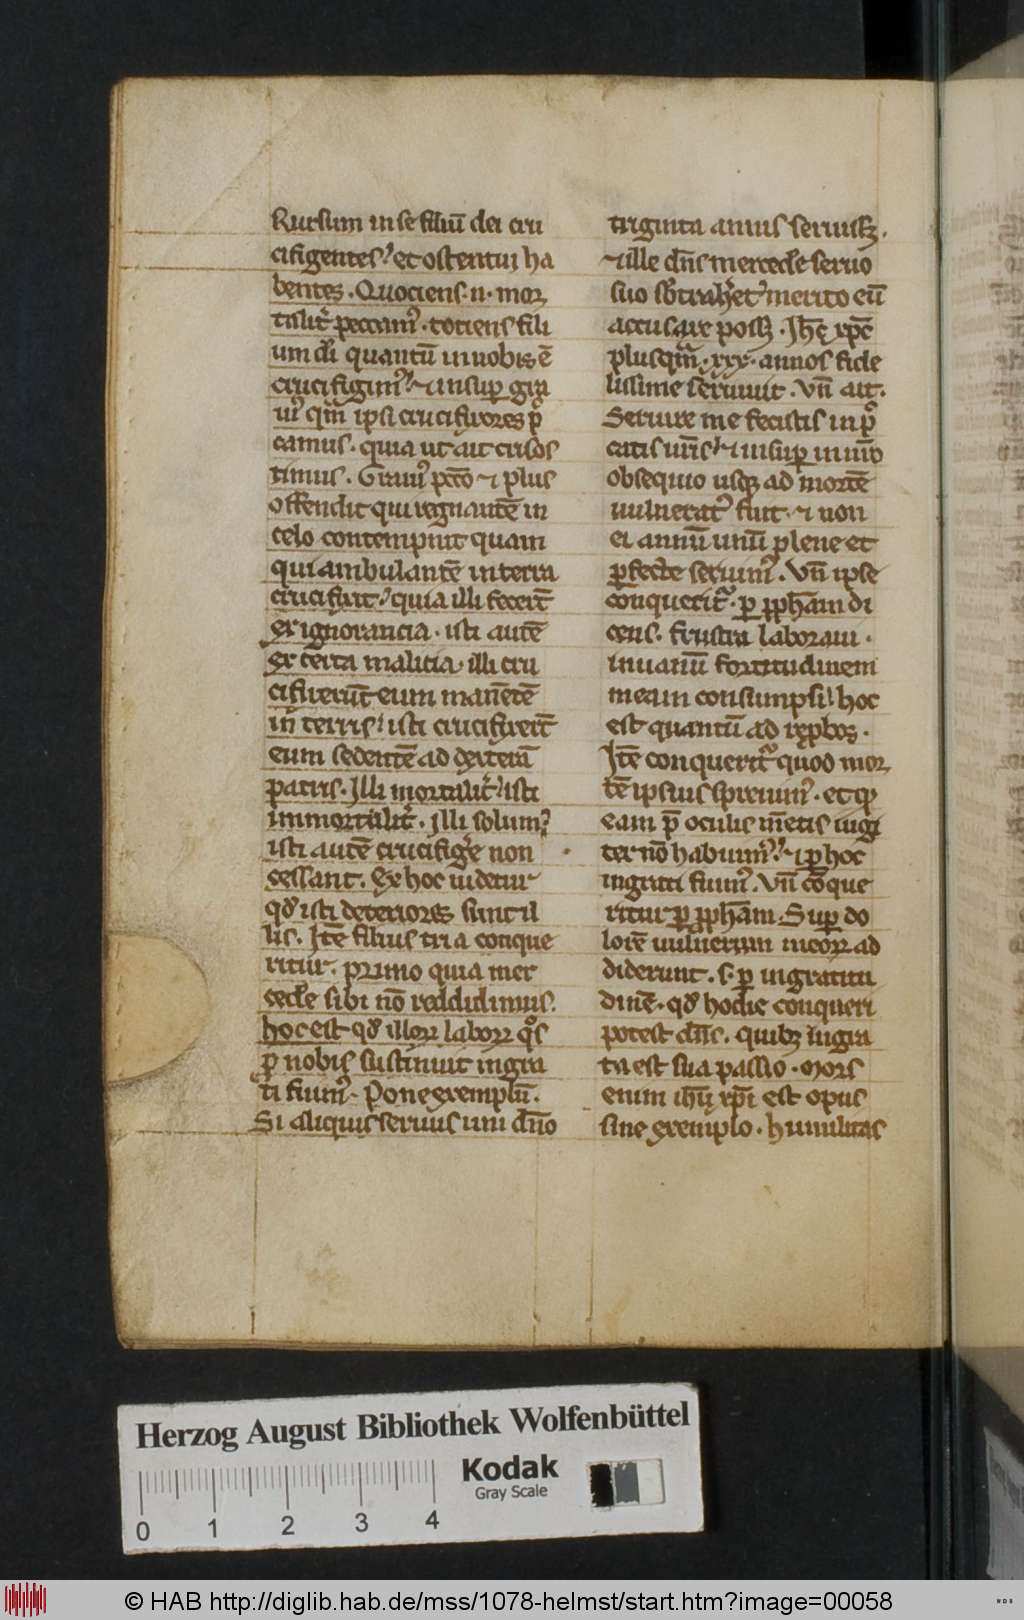 Rursum in se filiū dei cru
cifigentes et ostentui ha
bentes . Quociens . n . mor
talit̾ peccam᷒ . tociens fili
um dī quantū in nobis ē
crucifigim᷒ ⁊ insup̱ gra
ui᷒ qm̄ ipsi crucifixores p̄
camus . quia ut ait crisos
timus . Graui᷒ pccō ⁊ plus
offendit qui regnantē in
celo contempnit quam
qui ambulantē in terra
crucifixit . quia illi fecerūt
ex ignorancia . isti autē
ex certa malicia . illi cru
cifixerūt eum manētē
in terris isti crucifixerūt
eum sedentē ad dexterā
patris . Illi mortalit̾ isti
immortalit̾ . illi solum
isti autē crucifig̾e non
sessant . Ex hoc uidetur
qd̾ isti deteriores sunt il
lis . Itē filius tria conque
ritur . primo quia mer
cedē sibi nō reddidimus .
hoc est qd̾ illoꝝ laboꝝ qͦs
p̱ nobis sustinuit ingra
ti fuim᷒ . Pone exemplū .
Si aliquis seruus uni dn̄o
triginta annis seruissꝫ .
⁊ ille dn̄s mercedē seruo
suo sb̾trah̾et merito eū
accusare possꝫ . Ih̄c xp̄c
plusqm̄ . xxx . annos fide
lissime seruiuit . Vn̄ ait .
Seruire me fecistis in pͨ
catis ur̄is ⁊ insup̱ in nr̄o
obsequio usqꝫ ad mortē
uulnerat᷒ fuit . ⁊ non
ei annū unū plene et
p̱fecte seruim᷒ . Vn̄ ipse
conquerit᷑ . p̱ pph̄am di
cens . frustra laboraui .
in uanū fortitudinem
meam consumpsi hoc
est quantū ad rep̱bos .
Itē conquerit᷑ quod mor
tē ipsius spreuim᷒ . et qꝫ
eam p̄ oculis mētis iugi
ter nō habuim᷒ . ⁊ p̱ hoc
ingrati fuim᷒ . Vn̄ cōque
ritur p̱ pph̄am . Sup̱ do
lorē uulnerum meoꝝ ad
diderunt . s . p̱ ingratitu
dinē . qd̾ hodie conqueri
potest dn̄s . quibꝫ ingra
ta est sua passio . Mors
enim ih̄u xp̄i est opus
sine exemplo . humilitas
Herzog August Bibliothek Wolfenbüttel
Kodak
Gray Scale
0 1 2 3 4
© HAB http://diglib.hab.de/mss/1078-helmst/start.htm?image=00058